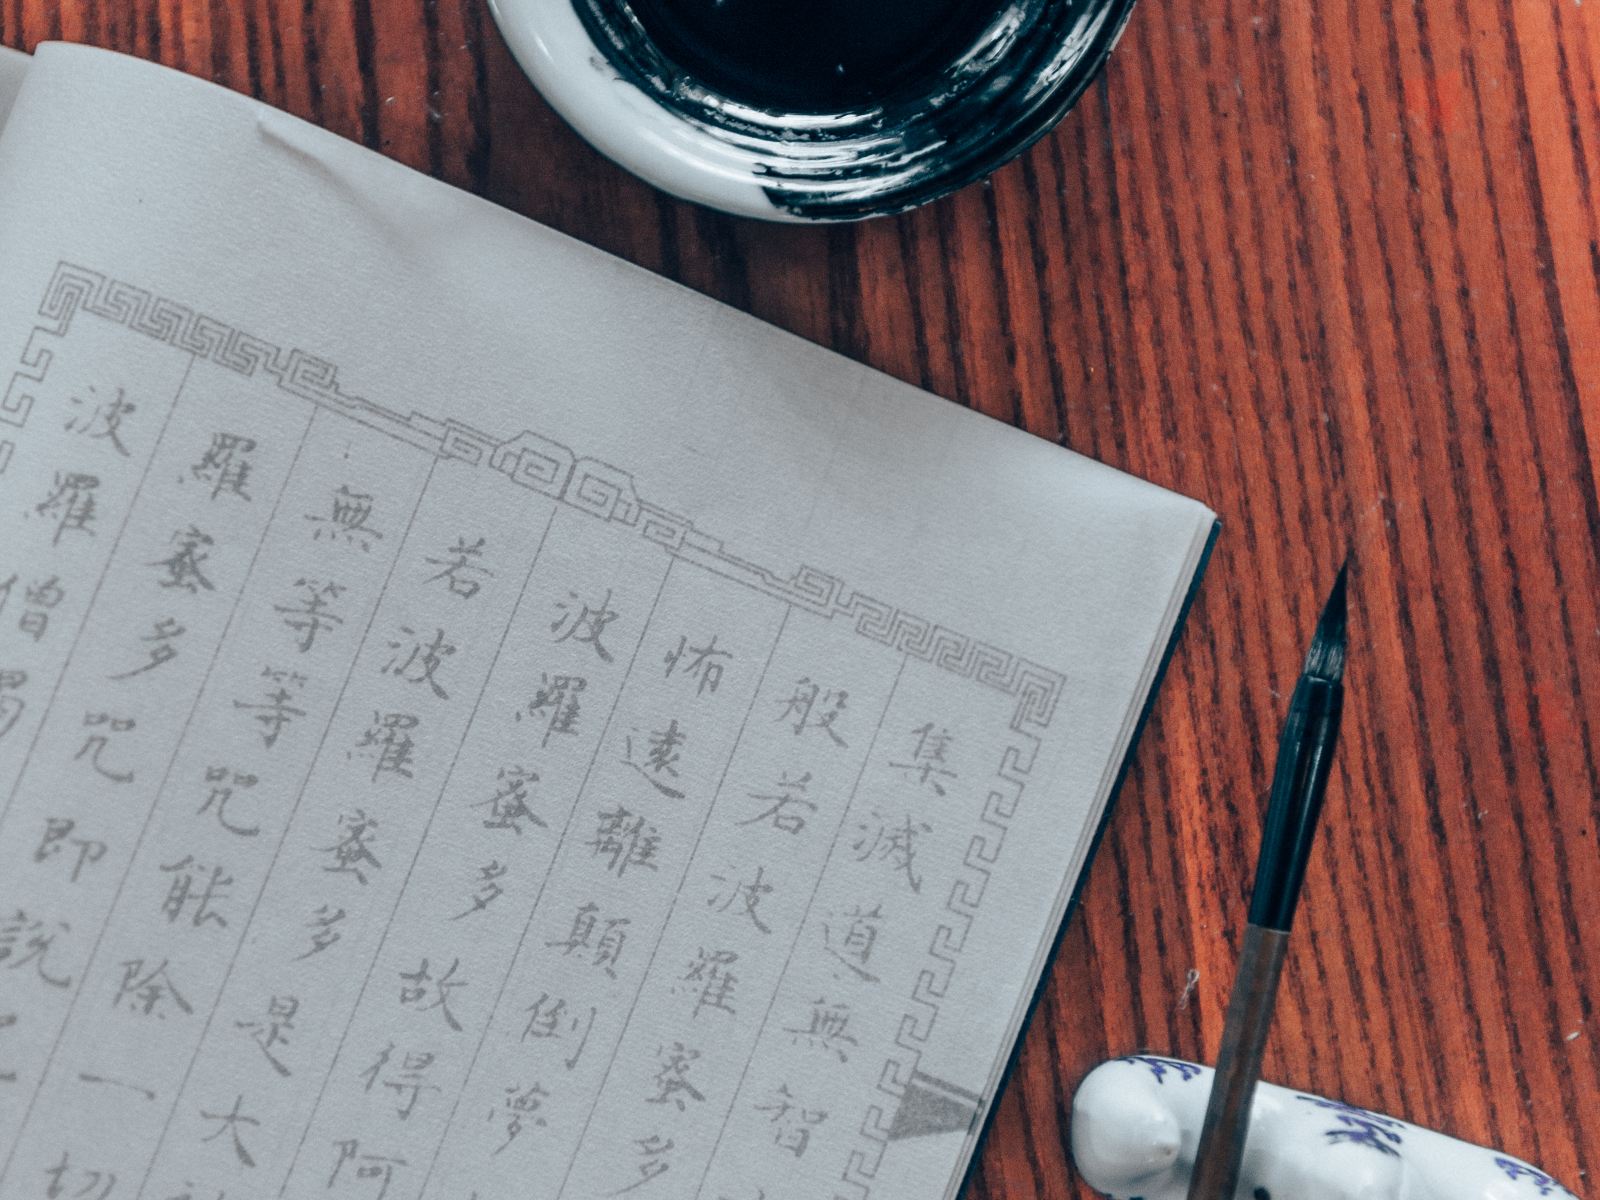 集滅道無智
般若波羅蜜多
怖遠離顛倒夢
波羅蜜多故得阿
若波羅蜜多是大
無等等咒能除一切
羅蜜多咒即說
波羅僧